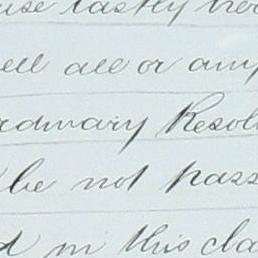 use lastly her
ell all or any
rdinary Resol
be not pass
d in this cla